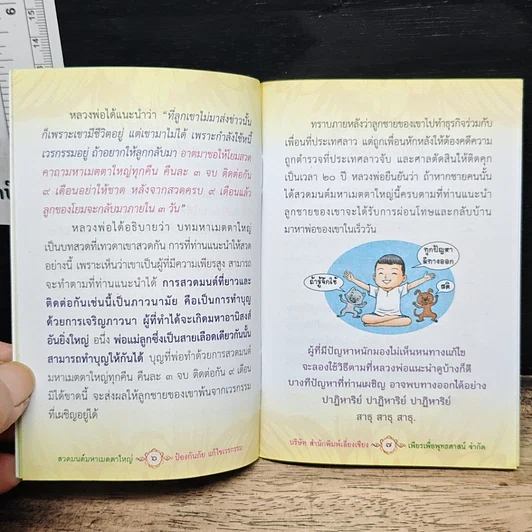 หลวงพ่อได้แนะนำว่า “ที่ลูกเขาไม่มาส่งข่าวนั้น
ก็เพราะเขามีชีวิตอยู่ แต่เขามาไม่ได้ เพราะกำลังใช้หนี้
เวรกรรมอยู่ ถ้าอยากให้ลูกกลับมา อาตมาขอให้โยมสวด
คาถามหาเมตตาใหญ่ทุกคืน คืนละ ๓ จบ ติดต่อกัน
๙ เดือนอย่าให้ขาด หลังจากสวดครบ ๙ เดือนแล้ว
ลูกของโยมจะกลับมาภายใน ๓ วัน”
หลวงพ่อได้อธิบายว่า บทมหาเมตตาใหญ่
เป็นบทสวดที่เทวดาเขาสวดกัน การที่ท่านแนะนำให้สวด
อย่างนี้ เพราะเห็นว่าเขาเป็นผู้ที่มีความเพียรสูง สามารถ
จะทำตามที่ท่านแนะนำได้ การสวดมนต์ที่ยาวและ
ติดต่อกันเช่นนี้เป็นภาวนามัย คือเป็นการทำบุญ
ด้วยการเจริญภาวนา ผู้ที่ทำได้จะเกิดมหาอานิสงส์
อันยิ่งใหญ่ อนึ่ง พ่อแม่ลูกซึ่งเป็นสายเลือดเดียวกันนั้น
สามารถทำบุญให้กันได้ บุญที่พ่อทำด้วยการสวดมนต์
มหาเมตตาใหญ่ทุกคืน คืนละ ๓ จบ ติดต่อกัน ๙ เดือน
มิได้ขาดนี้ จะส่งผลให้ลูกชายของเขาพ้นจากเวรกรรม
ที่เผชิญอยู่ได้
สวดมนต์มหาเมตตาใหญ่ ๖ ป้องกันภัย แก้ไขเวรกรรม
ทราบภายหลังว่าลูกชายของเขาไปทำธุรกิจร่วมกับ
เพื่อนที่ประเทศลาว แต่ถูกเพื่อนหักหลังให้ต้องคดีความ
ถูกตำรวจที่ประเทศลาวจับ และศาลตัดสินให้ติดคุก
เป็นเวลา ๒๐ ปี หลวงพ่อยืนยันว่า ถ้าหากชายคนนั้น
ได้สวดมนต์มหาเมตตาใหญ่นี้ครบตามที่ท่านแนะนำ
ลูกชายของเขาจะได้รับการผ่อนโทษและกลับบ้าน
มาหาพ่อของเขาในเร็ววัน
ทุกปัญหา
มีทางออก
ถ้ารู้จักใช้
สติ
ผู้ที่มีปัญหาหนักมองไม่เห็นหนทางแก้ไข
จะลองใช้วิธีตามที่หลวงพ่อแนะนำดูบ้างก็ดี
บางทีปัญหาที่ท่านเผชิญ อาจพบทางออกได้อย่าง
ปาฏิหาริย์ ปาฏิหาริย์ ปาฏิหาริย์
สาธุ สาธุ สาธุ.
บริษัท สำนักพิมพ์เลี่ยงเชียง ๗ เพียรเพื่อพุทธศาสน์ จำกัด